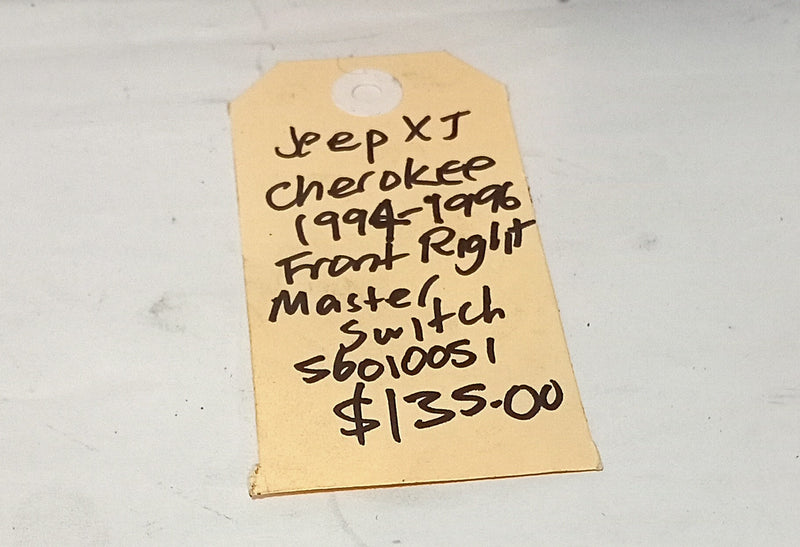 Jeep XJ
Cherokee
1994-1996
Front Right
Master
Switch
56010051
$135.00